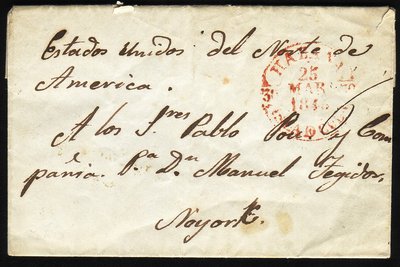 Estados Unidos del Norte de
America.
A los Sres Pablo y Com
pania. Pa Dn Manuel Tegidor.
Noyork.
HABANA
25
MARZO